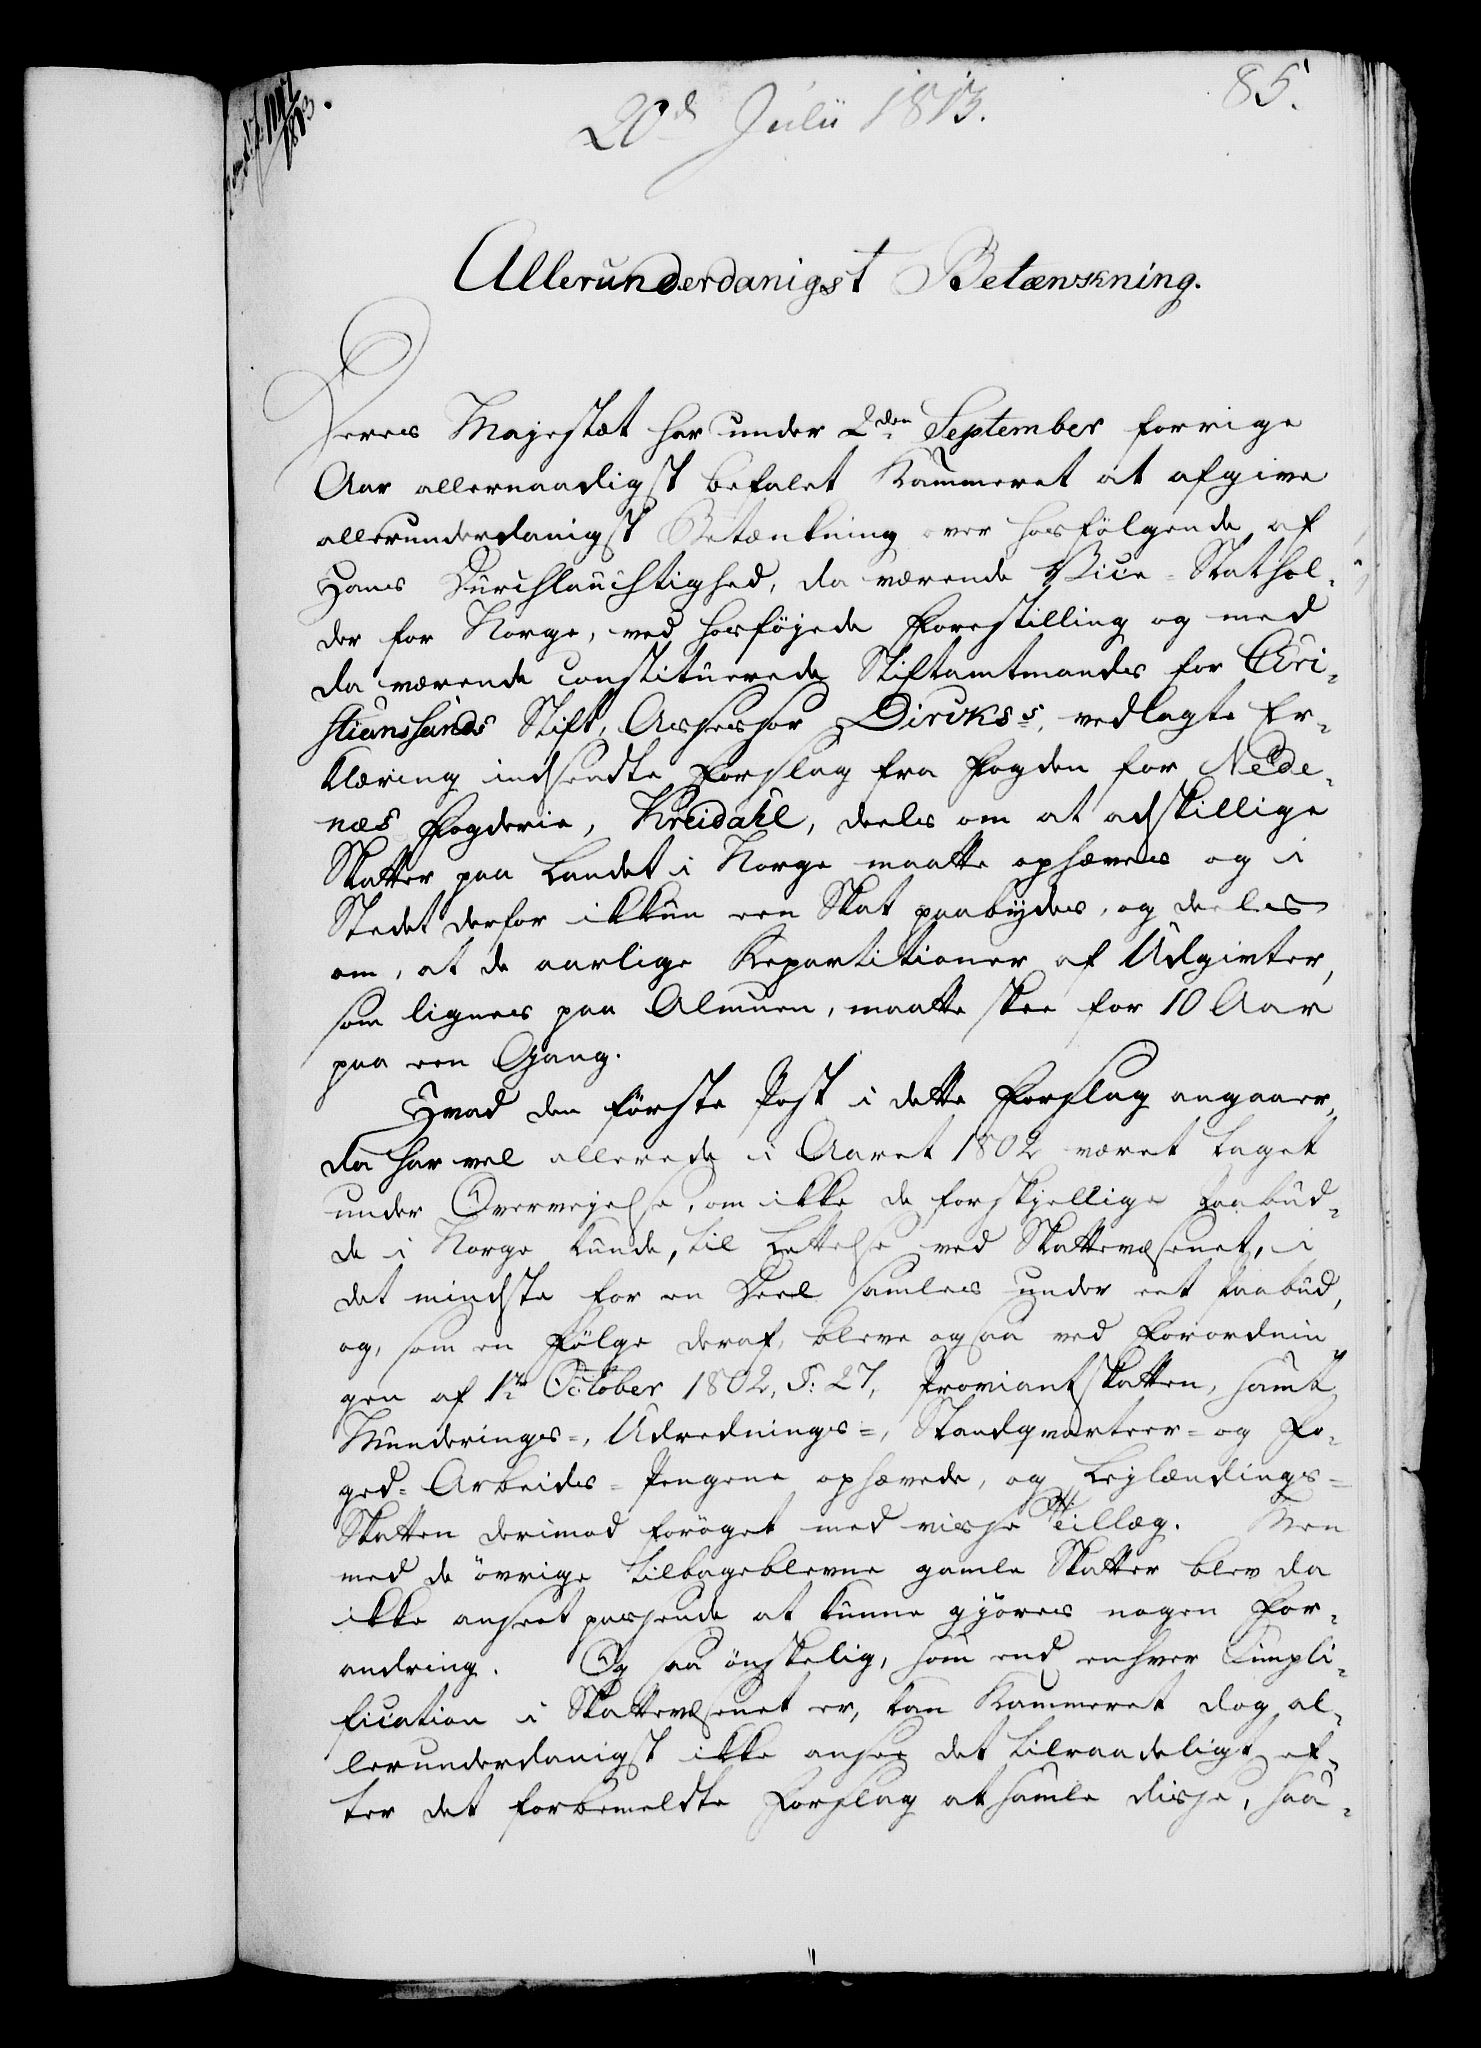 20d Julii 1813.
85.
Allerunderdanigst Betænkning.
Deres Majestæt har under 2den September forrige
Aar allernaadigst befalet Kammeret at afgive
allerunderdanigst Betænkning over hosfølgende af
Hans Durchlauchtighed, da værende Vice-Stathol-
der for Norge, ved hosføjede Forestilling og med
da værende constituerede Stiftamtmands for Chri-
stianssands Stift, Assessor Dircks's, vedlagte Er-
klæring indsendte Forslag fra Fogden for Nede-
næs Fogderie, Kreidahl, deels om at adskillige
Skatter paa Landet i Norge maatte ophæves og i
Stedet derfor ikkun een Skat paabydes, og deels
om, at de aarlige Repartitioner af Udgivter,
som lignes paa Almuen, maatte skee for 10 Aar
paa een Gang.
Hvad den første Post i dette Forslag angaaer,
da har vel allerede i Aaret 1802 været taget
under Overvejelse, om ikke de forskjellige Paabud-
de i Norge kunde, til Lettelse ved Skattevæsenet, i
det mindste for en Deel samles under eet Paabud,
og, som en Følge deraf, bleve ogsaa ved Forordnin-
gen af 1ste October 1802, §: 27, Proviantskatten, samt
Munderings-, Udrednings-, Standqvarteer- og Fo-
ged-Arbeids-Pengene ophævede, og Lejlændings-
Skatten derimod forøget med visse Tillæg. Men
med de øvrige tilbageblevne gamle Skatter blev da
ikke anseet passende at kunne gjøres nogen For-
andring. Og saa ønskelig, som end enhver Simpli-
fication i Skattevæsenet er, kan Kammeret dog al-
lerunderdanigst ikke ansee det tilraadeligt ef-
ter det forbemeldte Forslag at samle disse, saa-